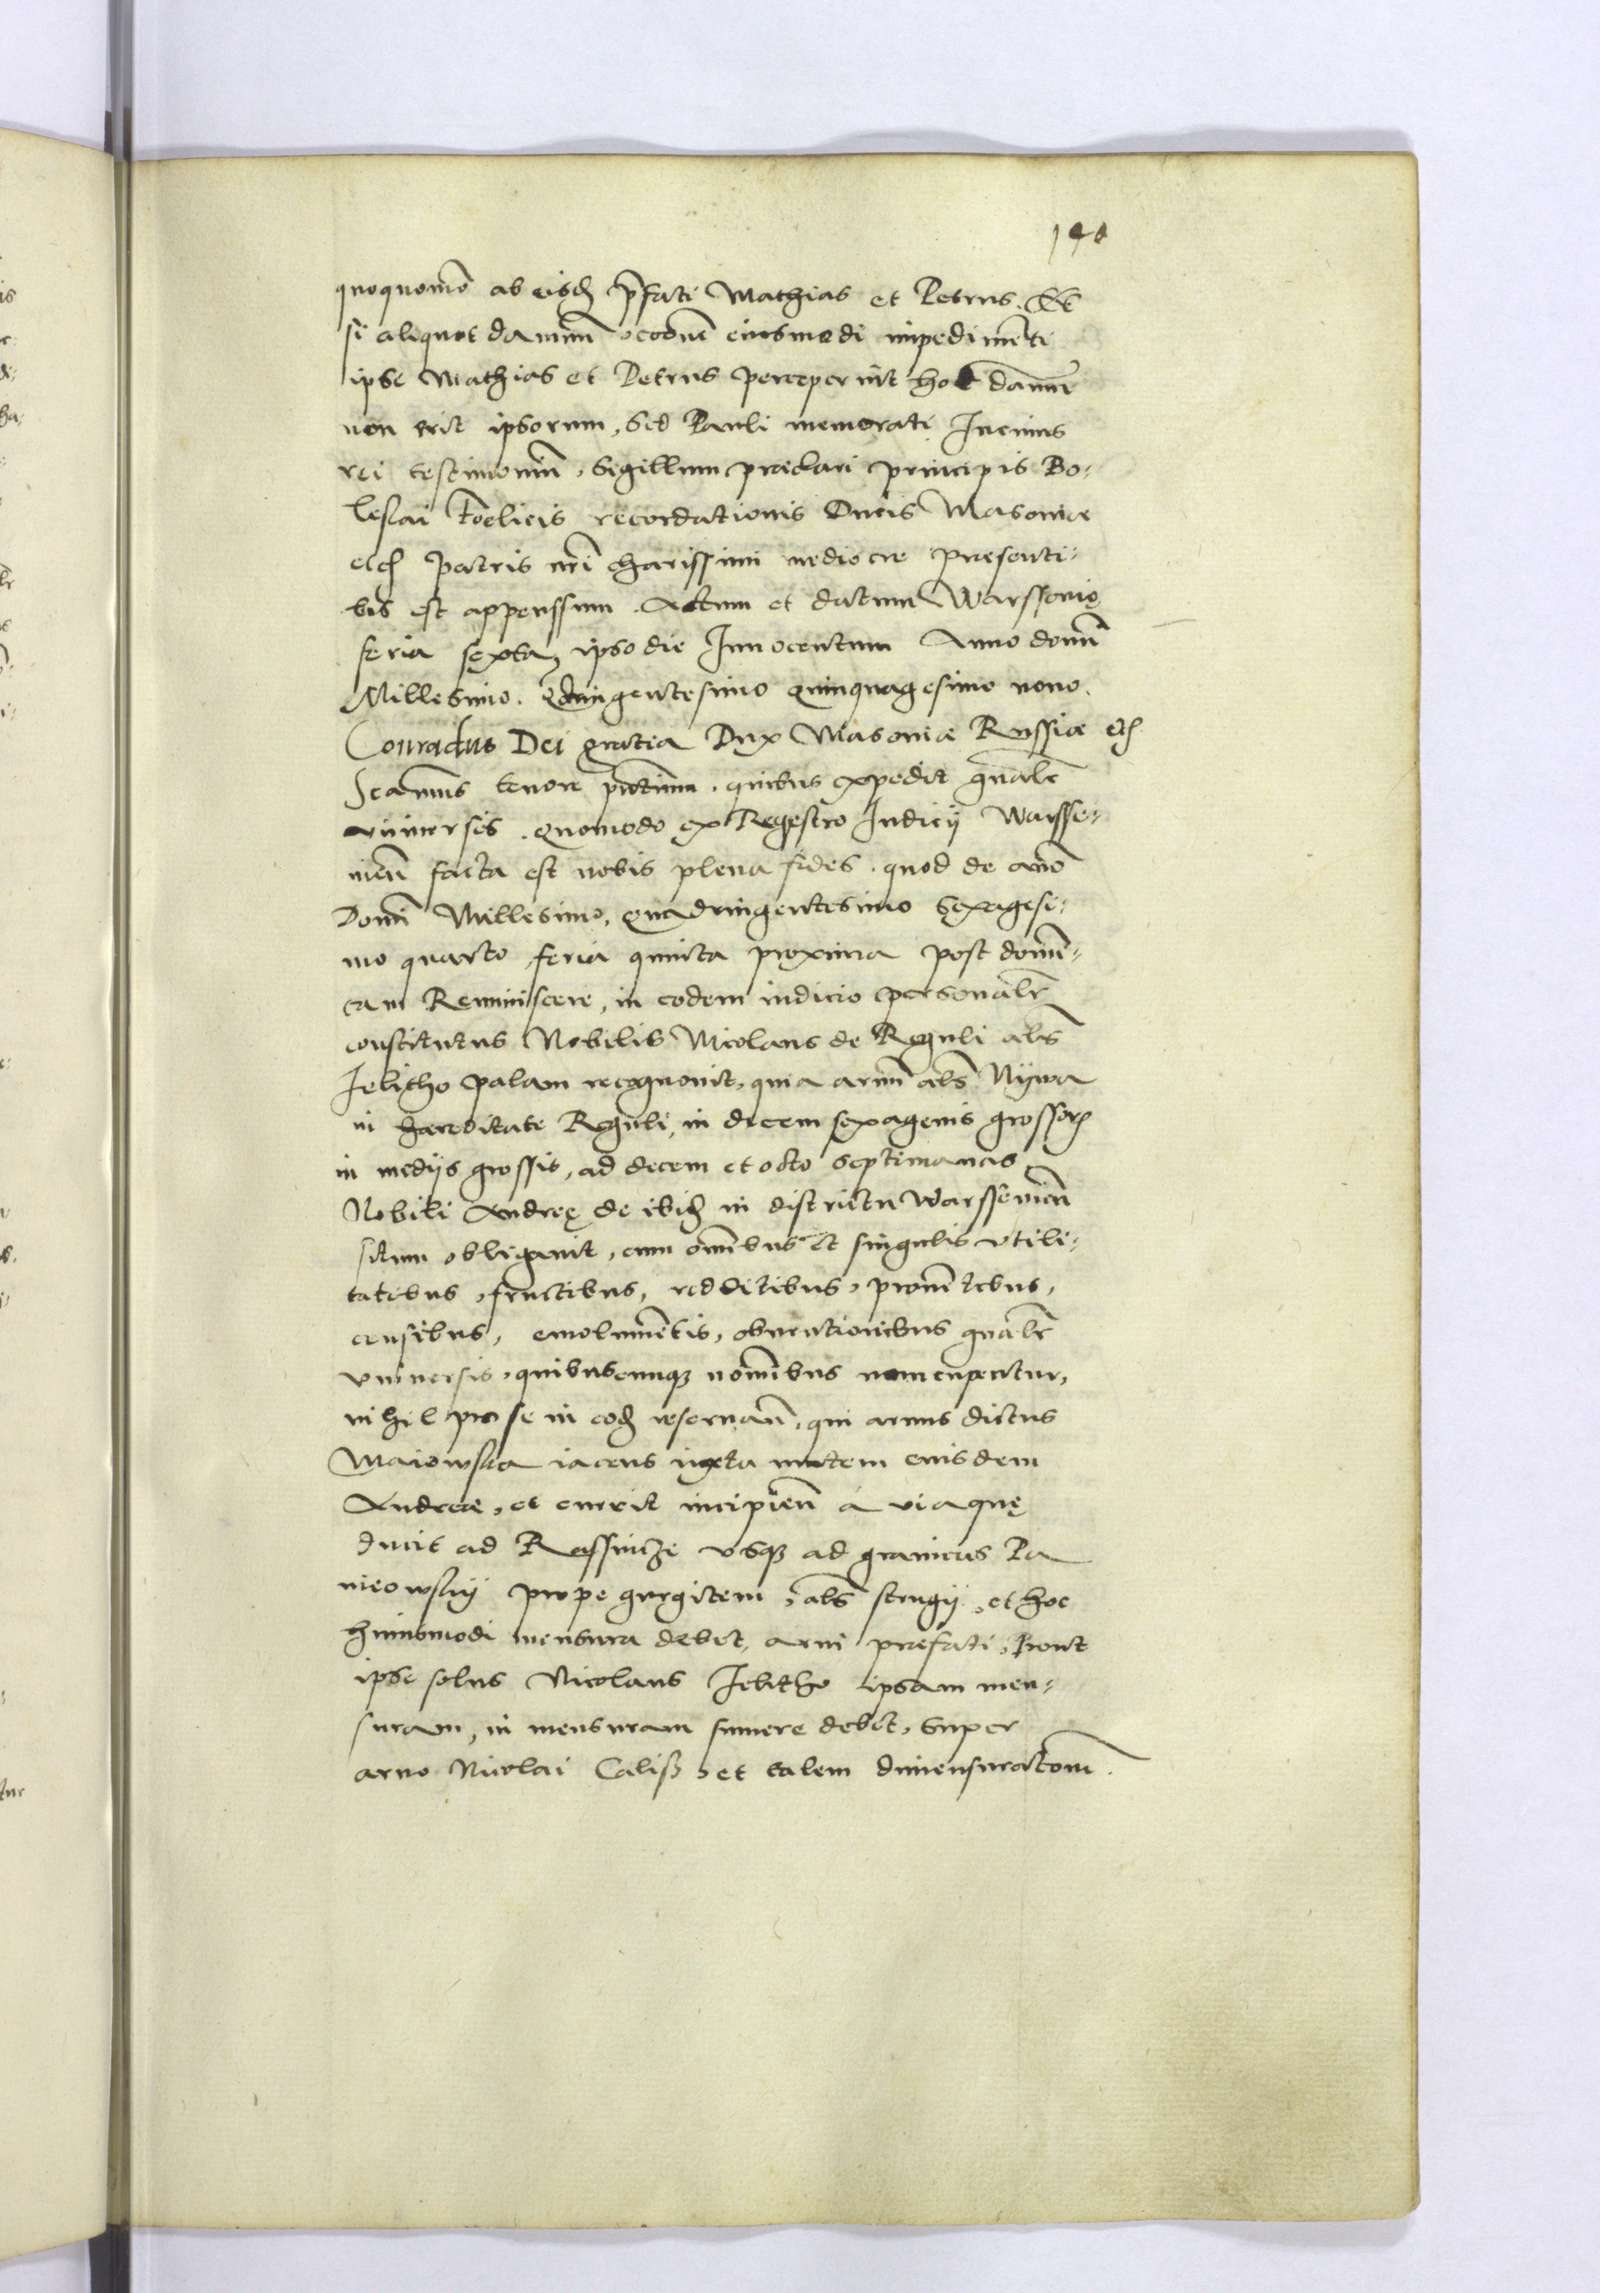 quoquomō ab eisdē p̄fati Mathias et Petrus. Et
si aliquot damnū occōne eiusmodi impedimēti
ipse Mathias et Petrus perceperint hoc damnū
non erit ipsorum, sed Pauli memorati. In cuius
rei testimoniū, Sigillum præclari principis Bo-
leslai fœlicis recordationis Ducis Masoviæ
etc̄ patris nr̄i charissimi mediocre præsenti-
bus est appenssum. Actum et datum Warssovię
feria sexta, ipso die Innocentum Anno domī
Millesimo. Quingentesimo quinquagesimo nono.
Conradus Dei gratia Dux Masoviæ Russiæ etc̄
Scamus tenore pntium. quibus expedit gnālr
universis. quomodo ex Regestro Iudicij Warsse-
uien̄ facta est nobis plena fides. quod de anō
Domī Millesimo, quadringentesimo Sexagesi-
mo quarto, feria quinta proxima post domī-
cam Reminiscere, in eodem iudicio personalr̄
constitutus Nobilis Nicolaus de Reguli als
Ielitho palam recognovit, quia arvū als Nywa
in hæreditate Reguli, in decem sexagenis grossorȝ
in medijs grossis, ad decem et octo septimanas
Nobili Andreę de ibidē in districtu Warsseuien̄
situm obligavit, cum omībus et singulis utili-
tatibus, fructibus, redditibus, provētibus,
censibus, emolumētis, obventionibus gnālr̄
universis, quibuscunqȝ nomībus nomcupentur,
nihil pro se in eodē reservan̄, qui arvus dictus
Maiowska iacens iuxta metem eiusdem
Andreæ, et currit incipien̄ á via quę
ducit ad Rassincze usqȝ ad granicies Pa
nieowskij prope gurgitem, als strugij, et hoc
huiusmodi mensura debet arvi præfati, Prout
ipse solus Nicolaus Ielitho ipsam men-
suram, in mensuram sumere debet, super
arvo Nicolai Caliss, et talem dimensuratiōm.